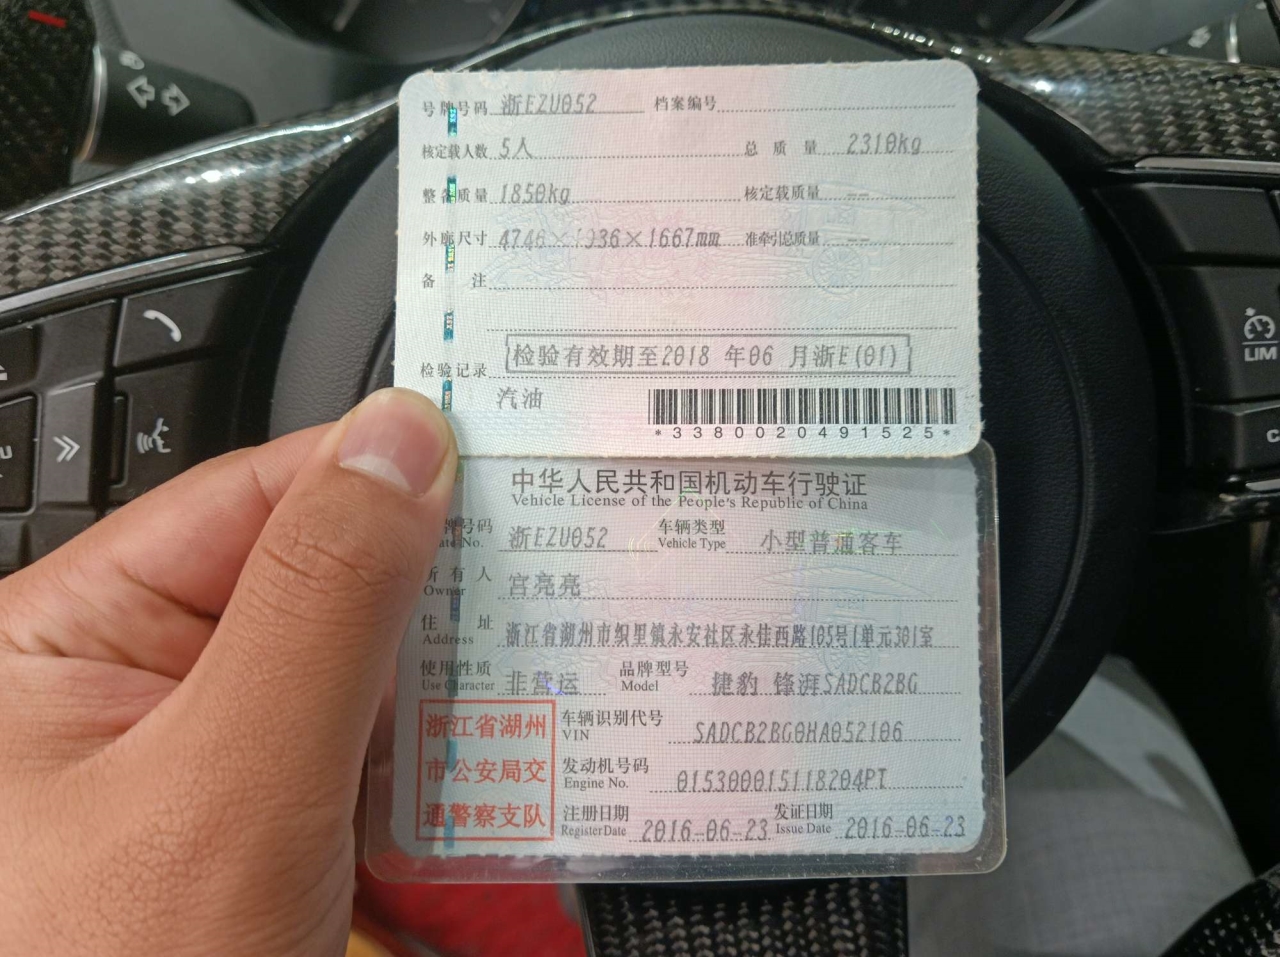 号牌号码 浙EZU052 档案编号
核定载人数 5人 总质量 2310kg
整备质量 1850kg 核定载质量 --
外廓尺寸 4746×1936×1667mm 准牵引总质量 --
备注
检验记录 检验有效期至2018 年06 月浙E(01)
汽油
*3380020491525*
中华人民共和国机动车行驶证
Vehicle License of the People's Republic of China
牌号码 浙EZU052 车辆类型 小型普通客车
ate No. Vehicle Type
所有人 宫亮亮
Owner
住址 浙江省湖州市织里镇永安社区永佳西路105号1单元301室
Address
使用性质 非营运 品牌型号 捷豹 锋湃SADCB2BG
Use Character Model
浙江省湖州
市公安局交
通警察支队
车辆识别代号 SADCB2BG0HA052106
VIN
发动机号码 015300015118204PT
Engine No.
注册日期 2016-06-23 发证日期 2016-06-23
Register Date Issue Date
LIM